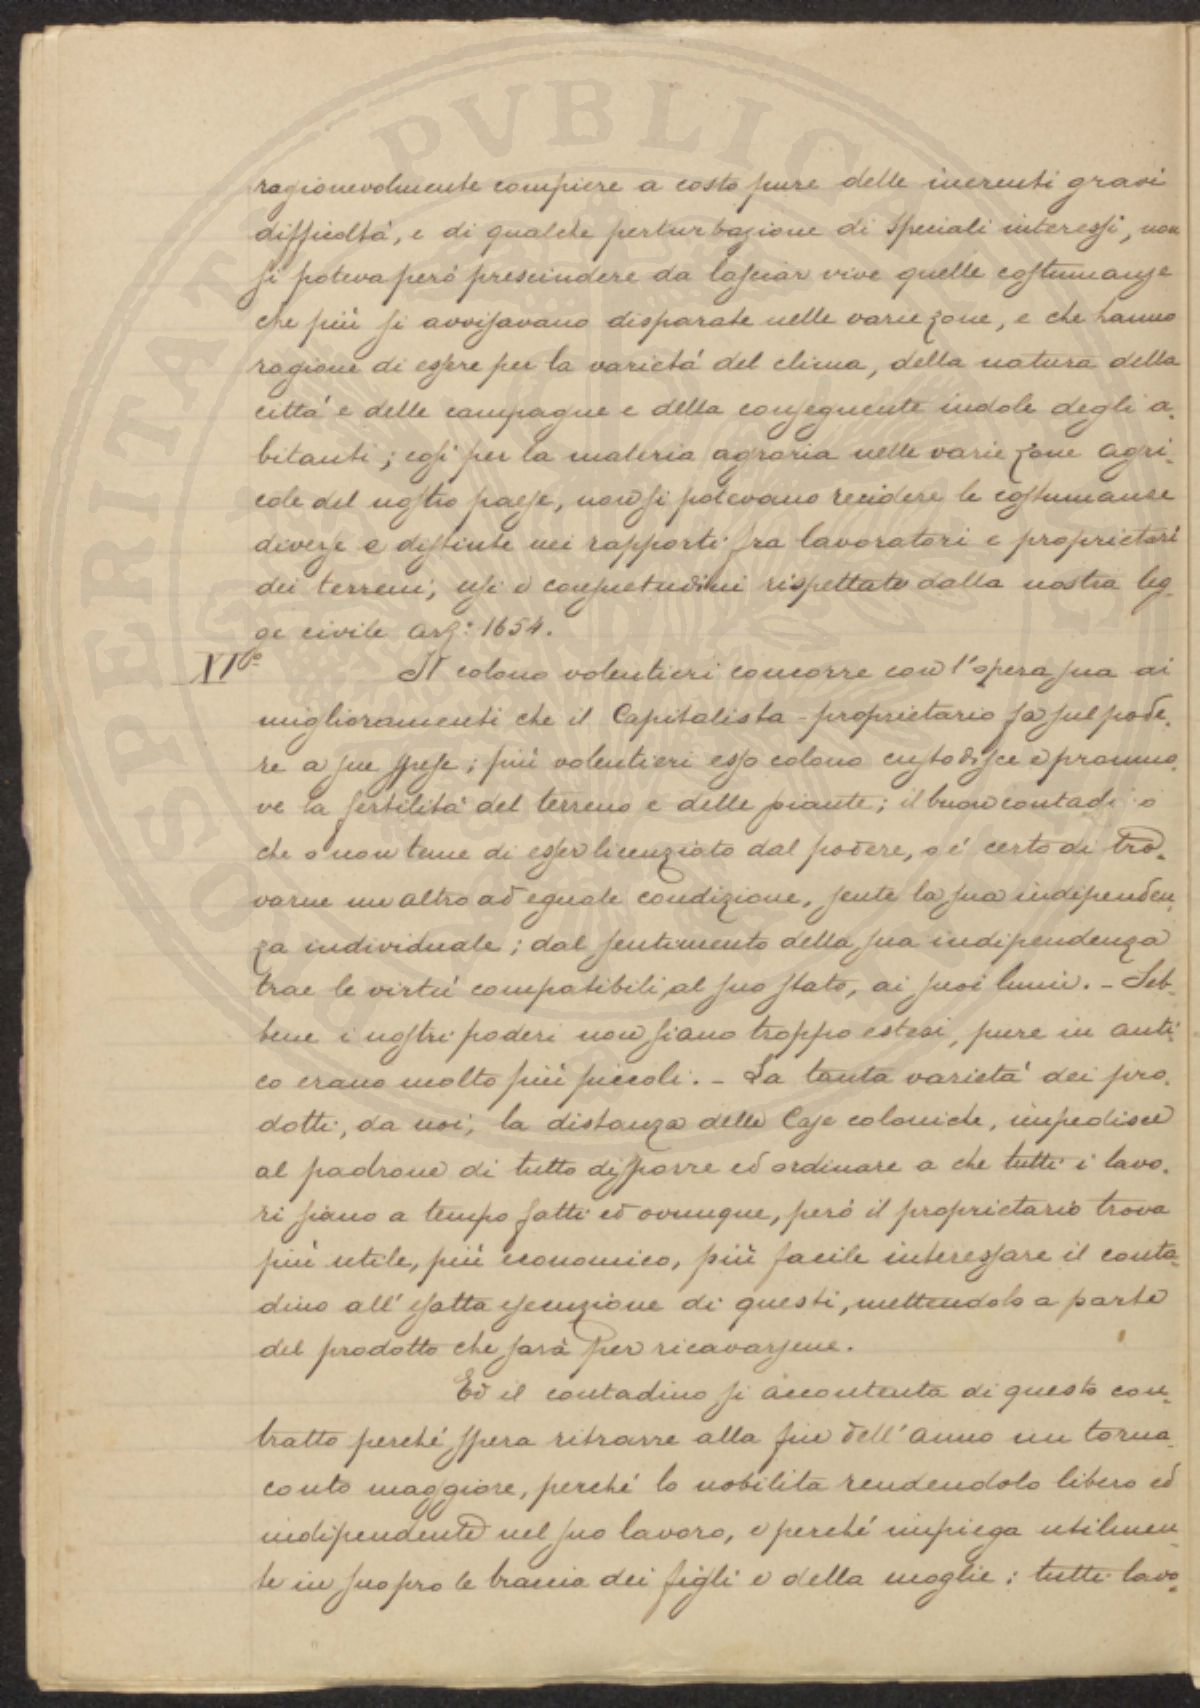 PROSPERITATI PVBLICAE
ragionevolmente compiere a costo pure delle inerenti gravi
difficoltá, e di qualche perturbazione di speciali interessi, non
si poteva peró prescindere da lasciar vive quelle costumanze
che piú si avvisavano disparate nelle varie zone, e che hanno
ragione di essere per la varietá del clima, della natura della
cittá e delle campagne e della conseguente indole degli a-
bitanti; cosí per la materia agraria nelle varie zone agri-
cole del nostro paese, non si potevano recidere le costumanze
diverse e distinte nei rapporti fra lavoratori e proprietari
dei terreni; usi e consuetudini rispettate dalla nostra leg-
ge civile art: 1654.
XI°
Il colono volentieri concorre con l'opera sua ai
miglioramenti che il Capitalista-proprietario fa sul pode-
re a sue spese; piú volentieri esso colono custodisce e promuo-
ve la fertilitá del terreno e delle piante; il buon contadi o
che o non teme di esser licenziato dal podere, o é certo di tro-
varne un altro ad eguale condizione, sente la sua indipenden-
za individuale; dal sentimento della sua indipendenza
trae le virtú compatibili al suo stato, ai suoi lumi. - Seb-
bene i nostri poderi non siano troppo estesi, pure in anti-
co erano molto piú piccoli. - La tanta varietá dei pro-
dotti, da noi, la distanza delle Case coloniche, impedisce
al padrone di tutto disporre ed ordinare a che tutti i lavo-
ri siano a tempo fatti ed ovunque, peró il proprietario trova
piú utile, piú economico, piú facile interessare il conta-
dino all'esatta esecuzione di questi, mettendolo a parte
del prodotto che sará per ricavarsene.
Ed il contadino si accontenta di questo con-
tratto perché spera ritrarre alla fine dell'anno un torna-
conto maggiore, perché lo nobilita rendendolo libero ed
indipendente nel suo lavoro, e perché impiega utilmen-
te in suo pro le braccia dei figli e della moglie: tutti lavo-